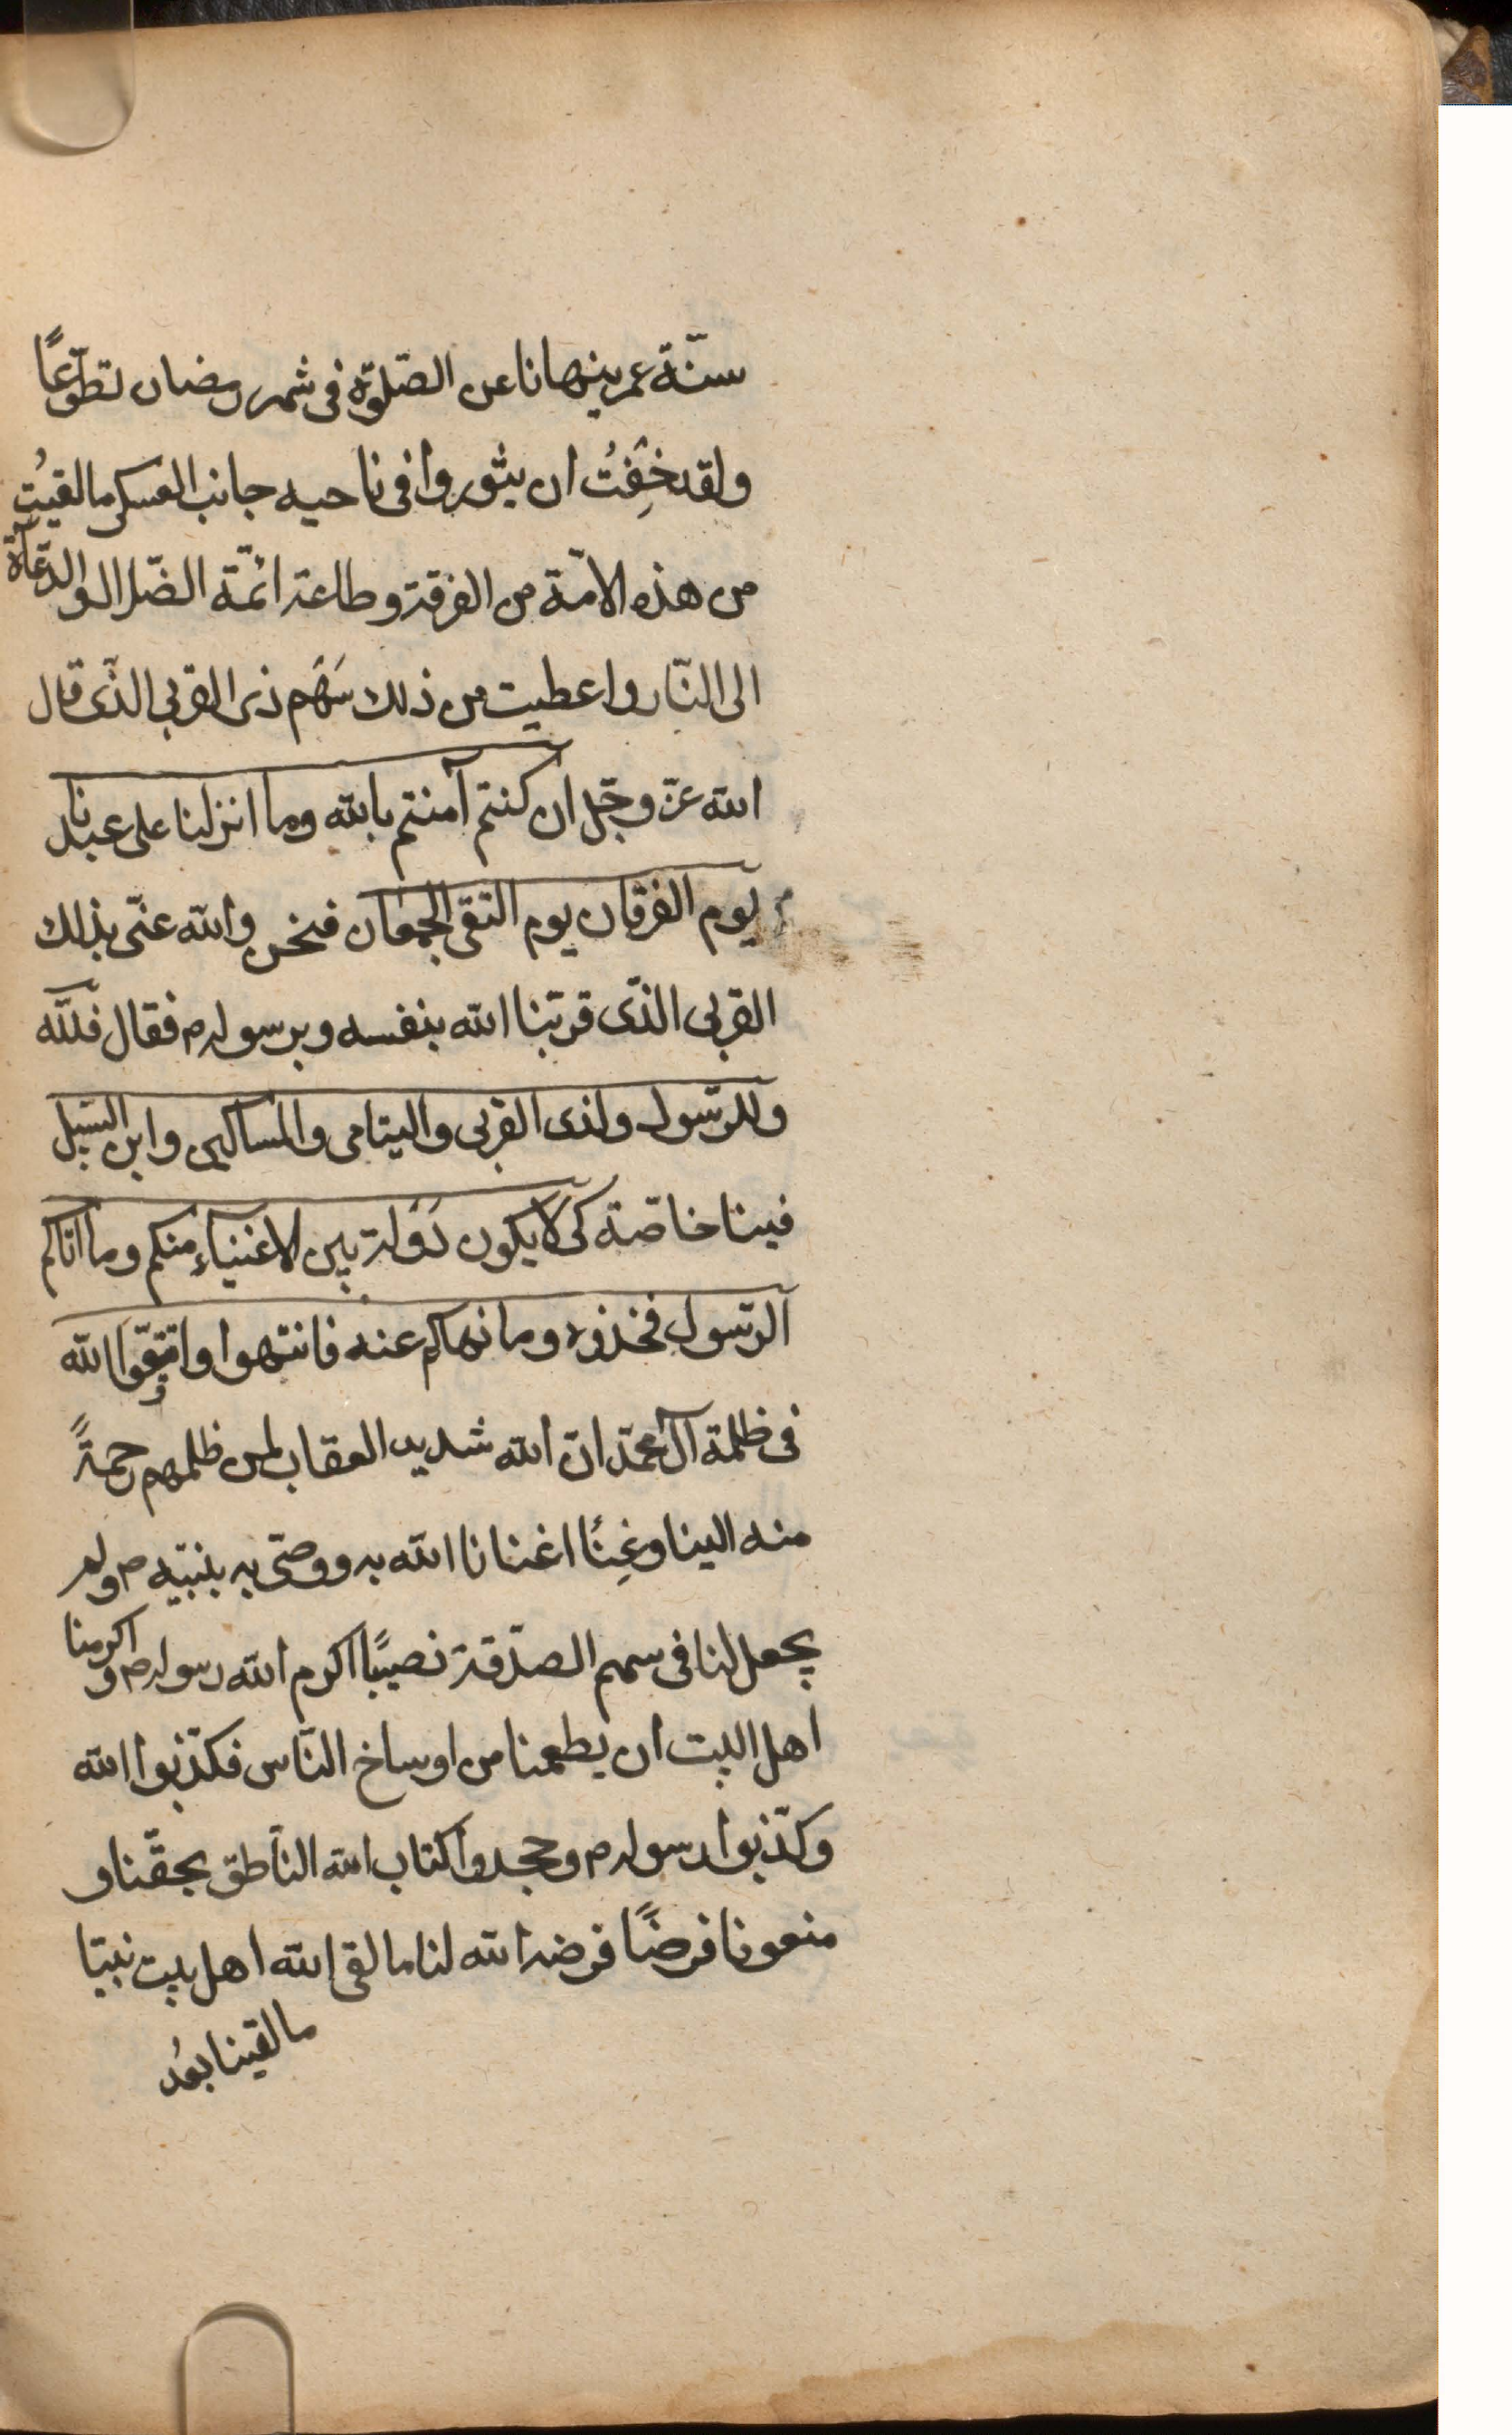 سنّة عمر ينهانا عن الصّلوٰة فى شهر رمضان تطوّعًا
ولقد خِفتُ ان يثوروا فى ناحيه جانب العسكر ما لقيتُ
من هذه الامّة من الفرقة وطاعة ائمّة الضّلال والدّعاة
الى النّار واعطيت من ذلك سَهَم ذى القربى الذّى قال
الله عزّ وجّل ان كنتم آمنتم بالله وما انزلنا على عبدنا
يوم الفرقان يوم التقى الجمعان فنحن والله عنّى بذلك
القربى الذّى قرّبنا الله بنفسه وبرسوله ص فقال فللّه
وللرّسول ولذى القربى واليتامى والمساكين وابن السّبيل
فينا خاصّة كَى لا يكون دَوَلة بين الاغنياءِ منكم وما اتاكم
الرّسول فخذوه وما نهاكم عنه فانتهوا واتّقوا الله
فى ظلمة آل محمّد انّ الله شديد العقاب لمن ظلمهم رحمةً
منه الينا وغِنًا اغنانا الله به ووصّى به بنبيّه ص ولم
يجعل لنا فى سهم الصّدقة نصيبًا اكرم الله رسوله ص واكرمنا
اهل البيت ان يطعمنا من اوساخ النّاس فكذّبوا الله
وكذّبوا رسوله ص وجحدوا كتاب الله النّاطق بحقّنا و
منعونا فرضًا فرضه الله لنا ما لقى الله اهل بيت نبيّا
ما لقينا بعُد